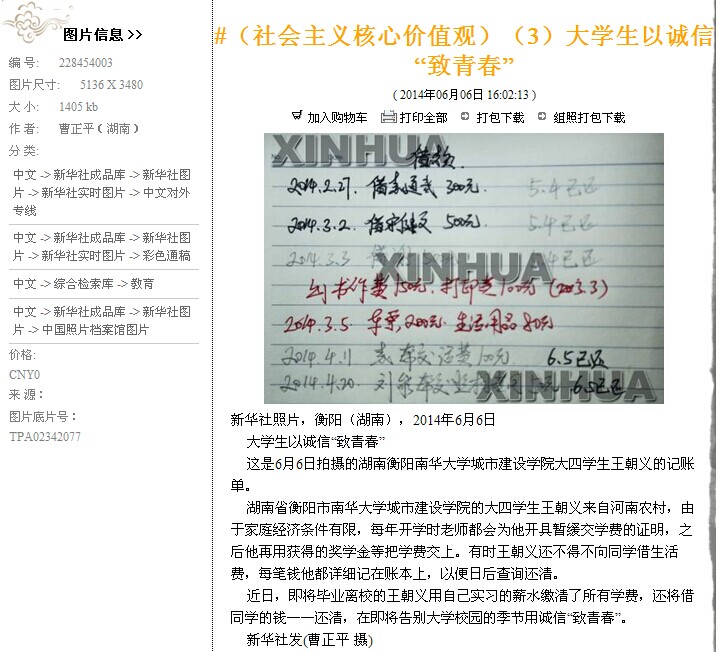 图片信息 >>
编 号: 228454003
图片尺寸: 5136 X 3480
大 小: 1405 kb
作 者: 曹正平（湖南）
分 类:
中文 -> 新华社成品库 -> 新华社图
片 -> 新华社实时图片 -> 中文对外
专线
中文 -> 新华社成品库 -> 新华社图
片 -> 新华社实时图片 -> 彩色通稿
中文 -> 综合检索库 -> 教育
中文 -> 新华社成品库 -> 新华社图
片 -> 中国照片档案馆图片
价格:
CNY0
来 源：
图片底片号：
TPA02342077
#（社会主义核心价值观）（3）大学生以诚信
“致青春”
( 2014年06月06日 16:02:13 )
加入购物车 打印全部 打包下载 组照打包下载
XINHUA
借款
2014.2.27. 借袁通武 300元. 5.4已还
2014.3.2. 借宋 500元. 5.4已还
2014.3.3 已还
XINHUA
费150元. 打印费100元 (2013.3)
2014.3.5. 车票, 200元. 生活用品80元
2014.4.11 元 6.5已还
2014.4.20. 刘 6.5已还
XINHUA
新华社照片，衡阳（湖南），2014年6月6日
大学生以诚信“致青春”
这是6月6日拍摄的湖南衡阳南华大学城市建设学院大四学生王朝义的记账
单。
湖南省衡阳市南华大学城市建设学院的大四学生王朝义来自河南农村，由
于家庭经济条件有限，每年开学时老师都会为他开具暂缓交学费的证明，之
后他再用获得的奖学金等把学费交上。有时王朝义还不得不向同学借生活
费，每笔钱他都详细记在账本上，以便日后查询还清。
近日，即将毕业离校的王朝义用自己实习的薪水缴清了所有学费，还将借
同学的钱一一还清，在即将告别大学校园的季节用诚信“致青春”。
新华社发(曹正平 摄)